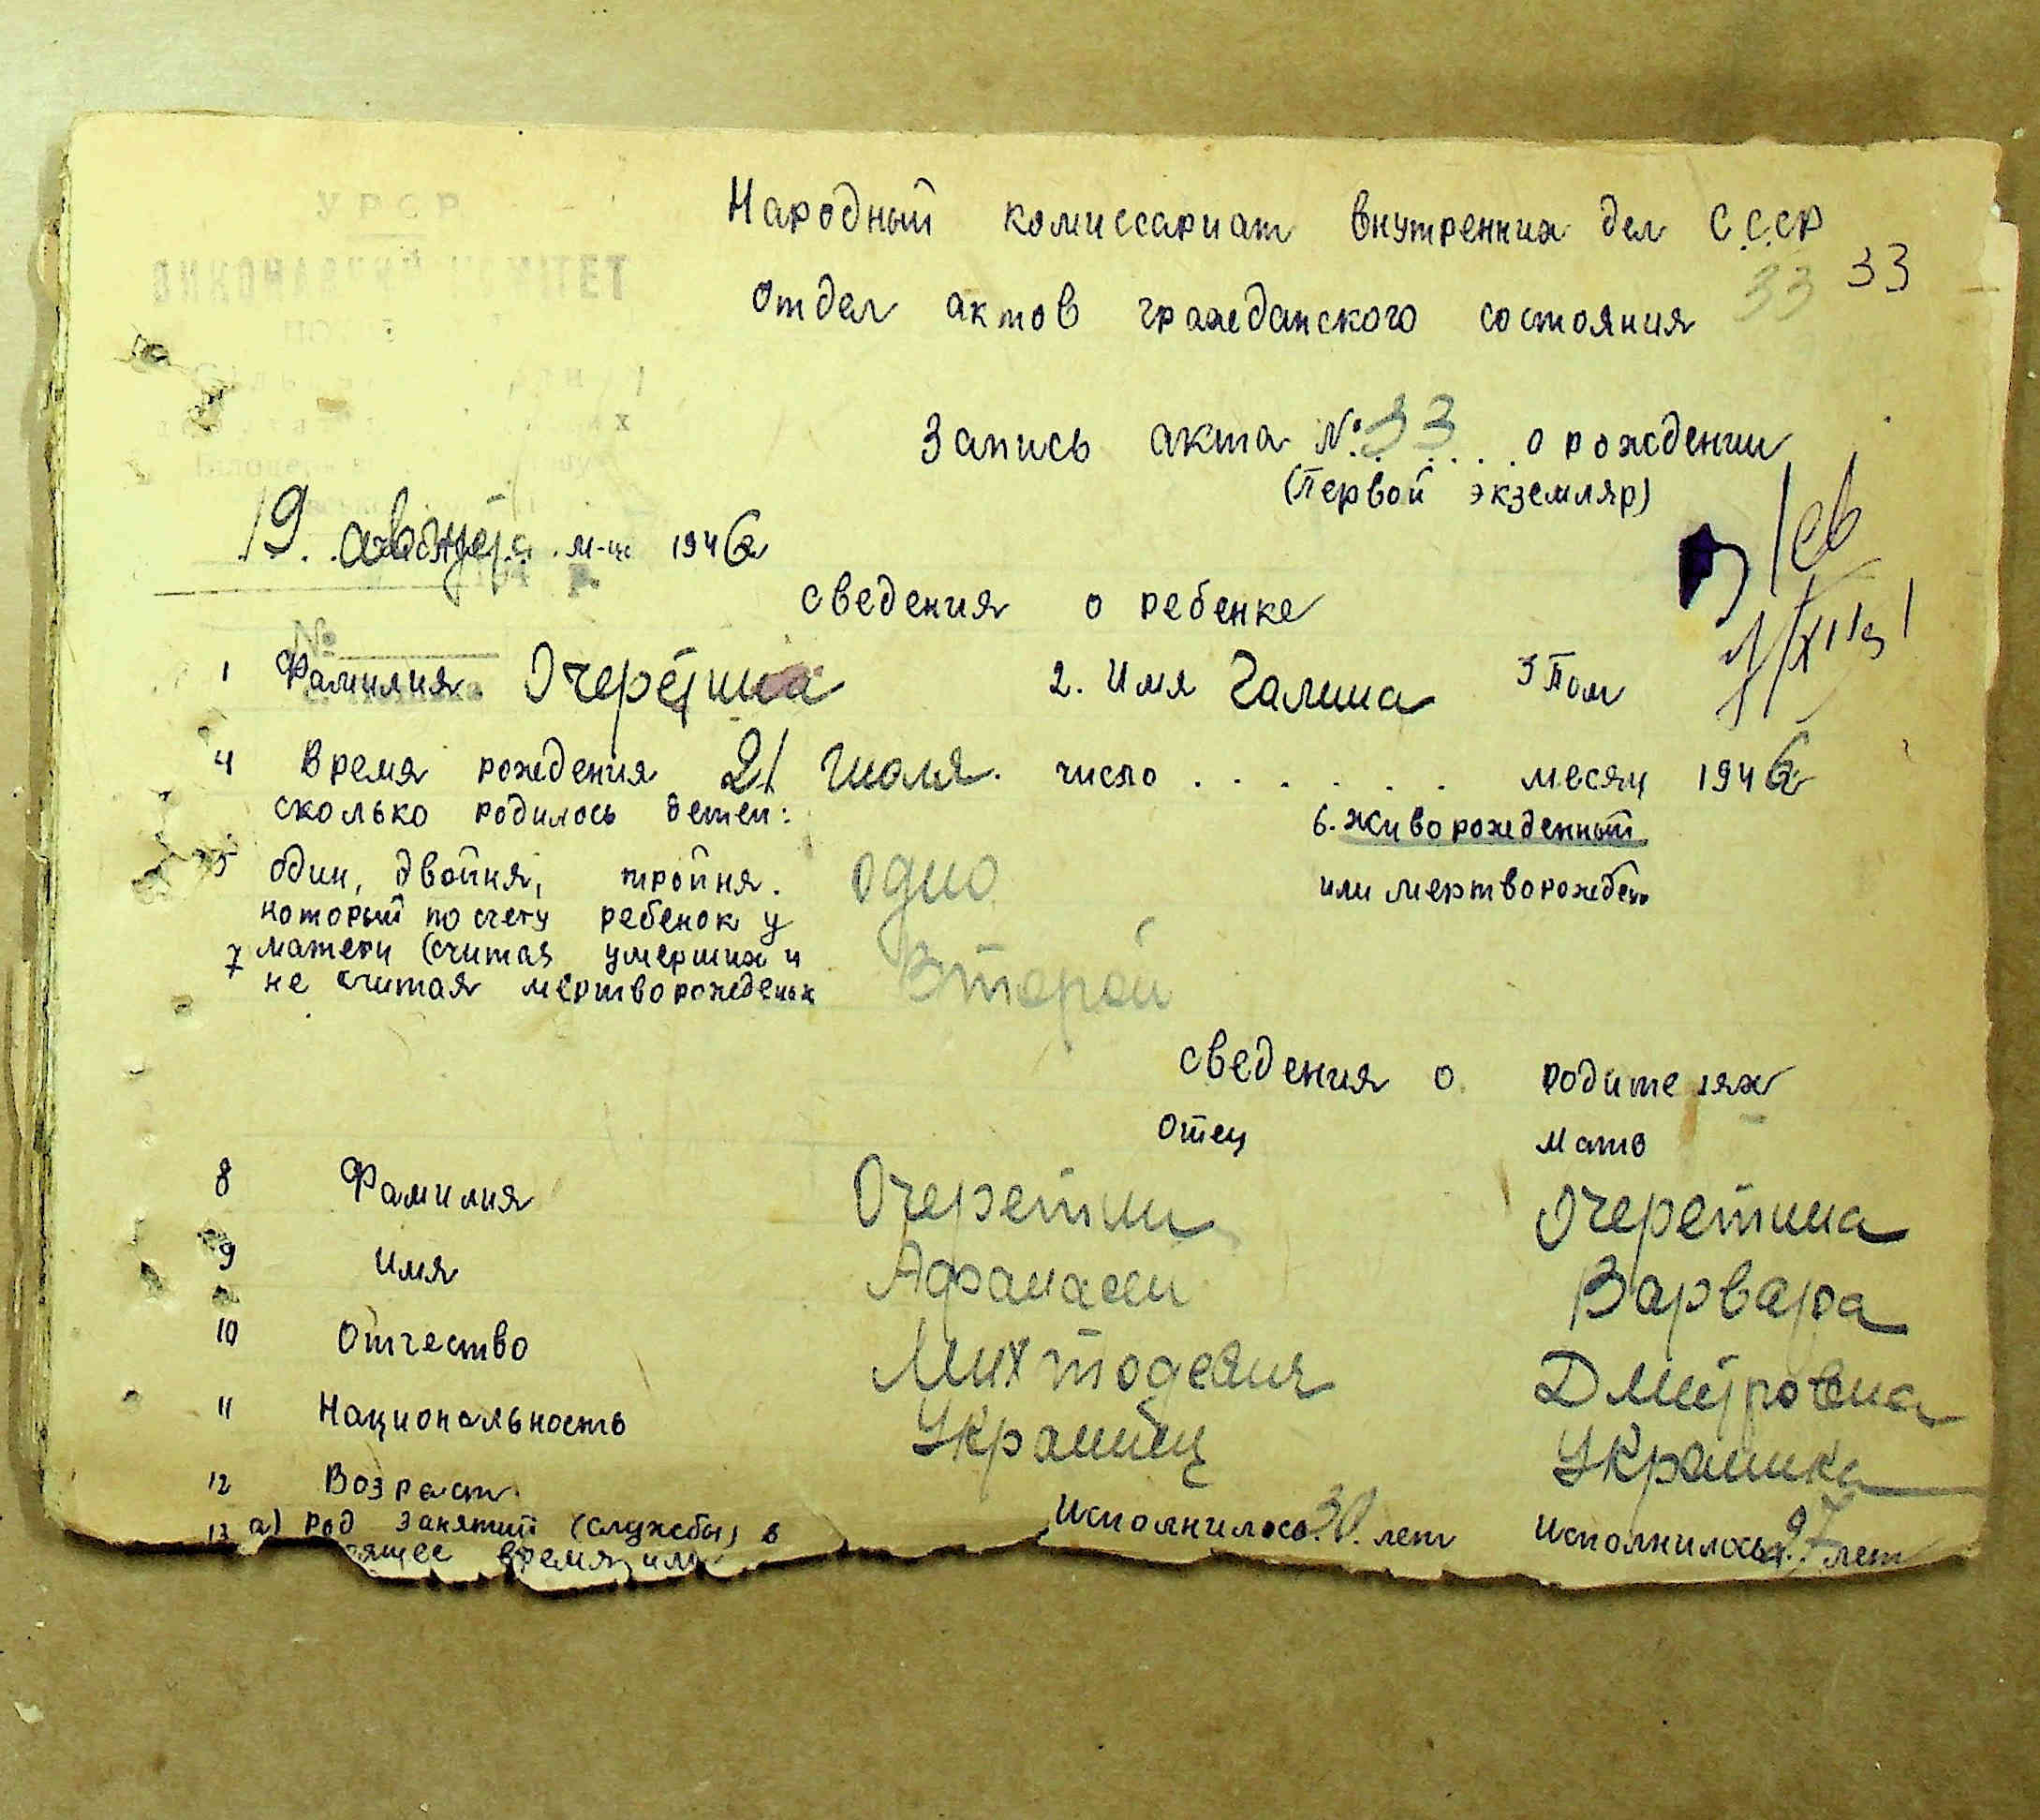 УРСР
ВИКОНАВЧИЙ КОМІТЕТ
Народный комиссариат внутрених дел С.С.С.Р
33 33
Отдел актов гражданского состояния
Запись акта №. 33 . . . . о рождении
(Первой экземляр)
19. августа . м-ца 1946
сведения о ребенке
№
1 Фамилия Очеретина 2. Имя Галина 3 Пол
4 Время рождения 21 Июля. число . . . . . . месяц 1946
сколько родилось детей:
6. живорожденный
5 один, двойня, тройня. одно
или мертворожден
который по счету ребенок у
7 матери (считая умерших и
не считая мертворожденых Второй
сведения о родителях
Отец Мать
8 Фамилия Очеретин Очеретина
9 Имя Афанасий Варвара
10 Отчество Дмитровна
11 Национальность Украинец Украинка
12 Возраст Исполнилось 30. лет Исполнилось 27 лет
13 а) род занятий (службы) в
оящее время или